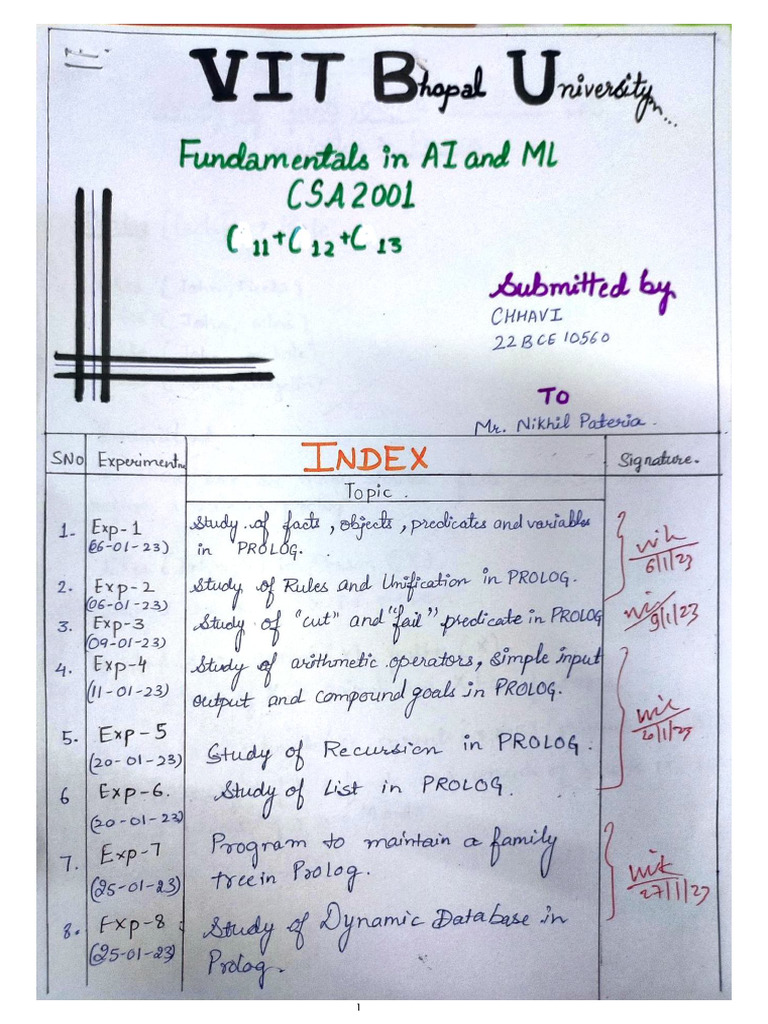 VIT Bhopal University
Fundamentals in AI and ML
CSA2001
C11+C12+C13
Submitted by
CHHAVI
22BCE10560
TO
Mr. Nikhil Pateria.
SNO Experiment INDEX Signature.
Topic.
1. Exp-1 Study of facts, objects, predicates and variables
(06-01-23) in PROLOG.
6/1/23
2. Exp-2 Study of Rules and Unification in PROLOG.
(06-01-23)
3. Exp-3 Study of "cut" and "fail" predicate in PROLOG 9/1/23
(09-01-23)
4. Exp-4 Study of arithmetic operators, simple input
(11-01-23) output and compound goals in PROLOG.
20/1/23
5. Exp-5 Study of Recursion in PROLOG.
(20-01-23)
6 Exp-6. Study of List in PROLOG.
(20-01-23)
7. Exp-7 Program to maintain a family
(25-01-23) tree in Prolog.
27/1/23
8. Exp-8 Study of Dynamic Database in
(25-01-23) Prolog.
1